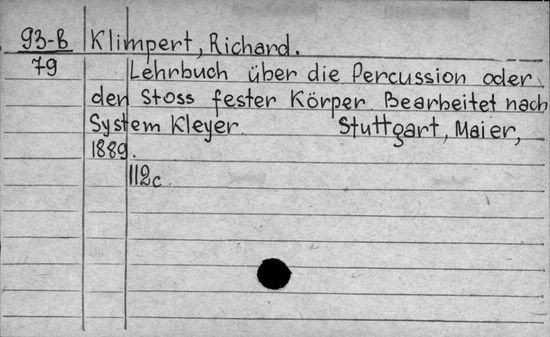 93-B Klimpert, Richard.
79 Lehrbuch über die Percussion oder
den Stoss fester Körper. Bearbeitet nach
System Kleyer. Stuttgart, Maier,
1889.
112c.